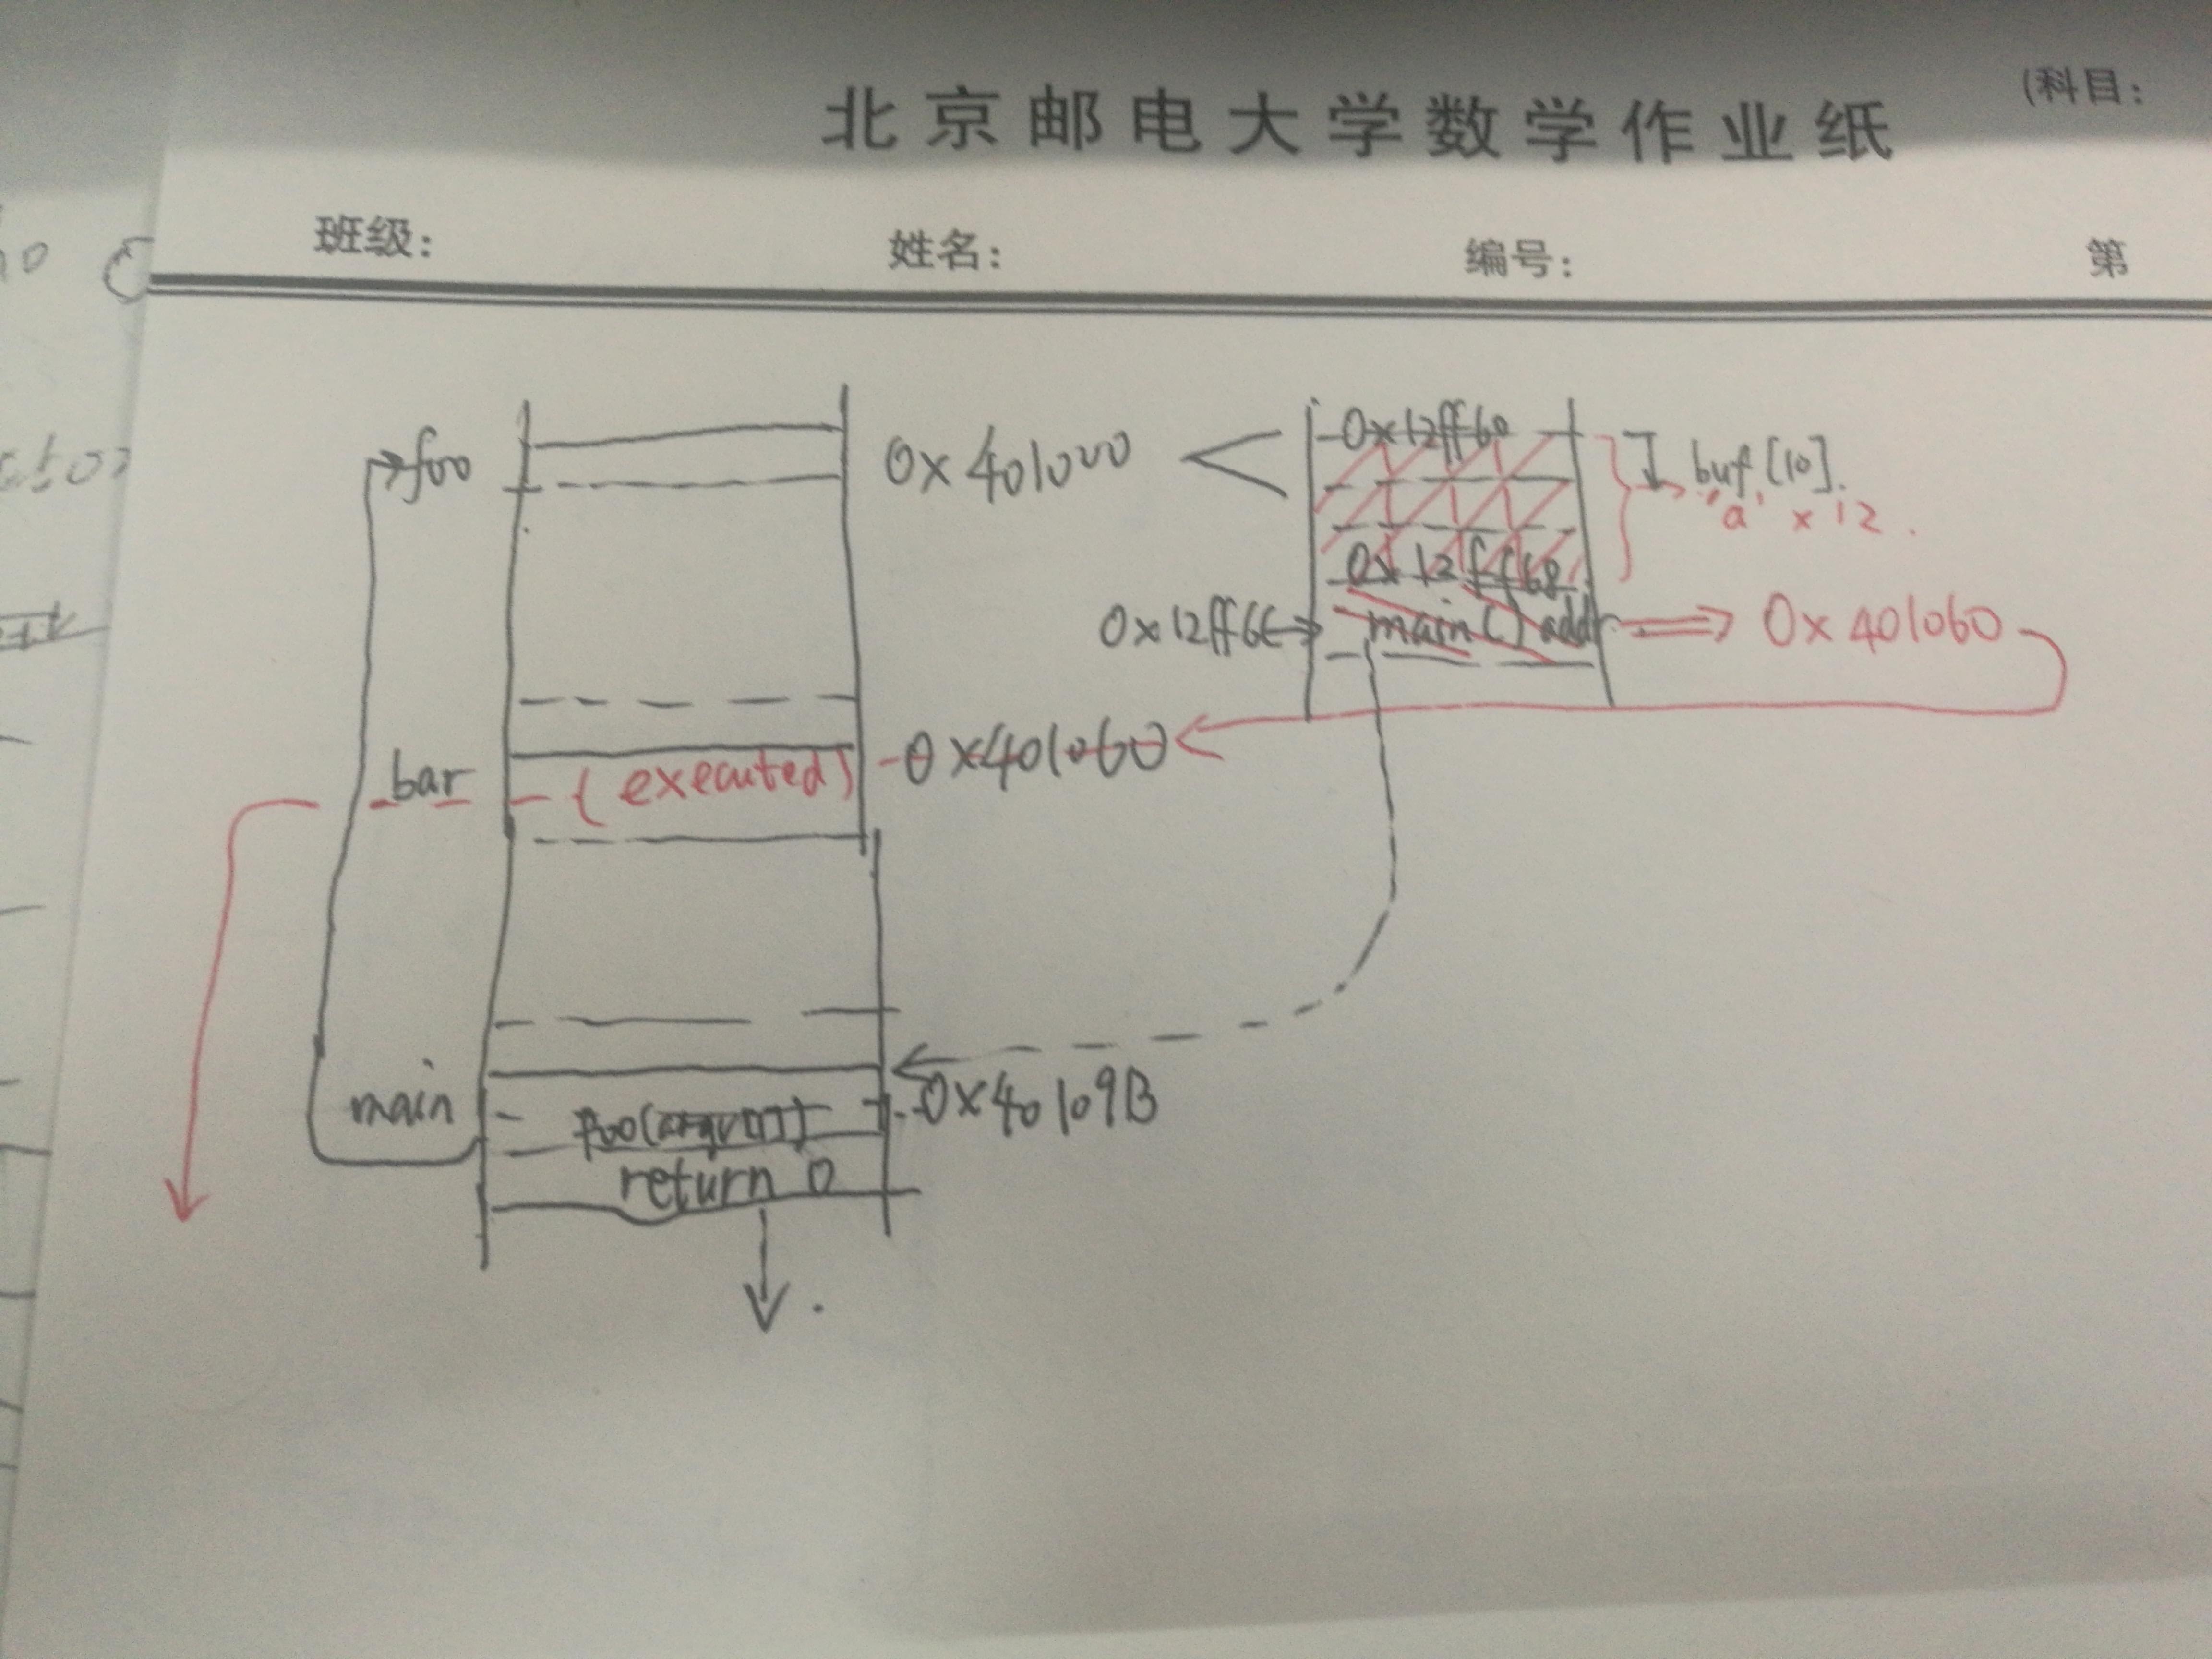 (科目:
北京邮电大学数学作业纸
班级: 姓名: 编号: 第
foo 0x401000 0x12ff60 buf [10].
'a' x 12.
0x12ff68
0x12ff6C main() addr 0x401060
bar (executed) 0x401060
main foo(argv[1]) 0x40109B
return 0